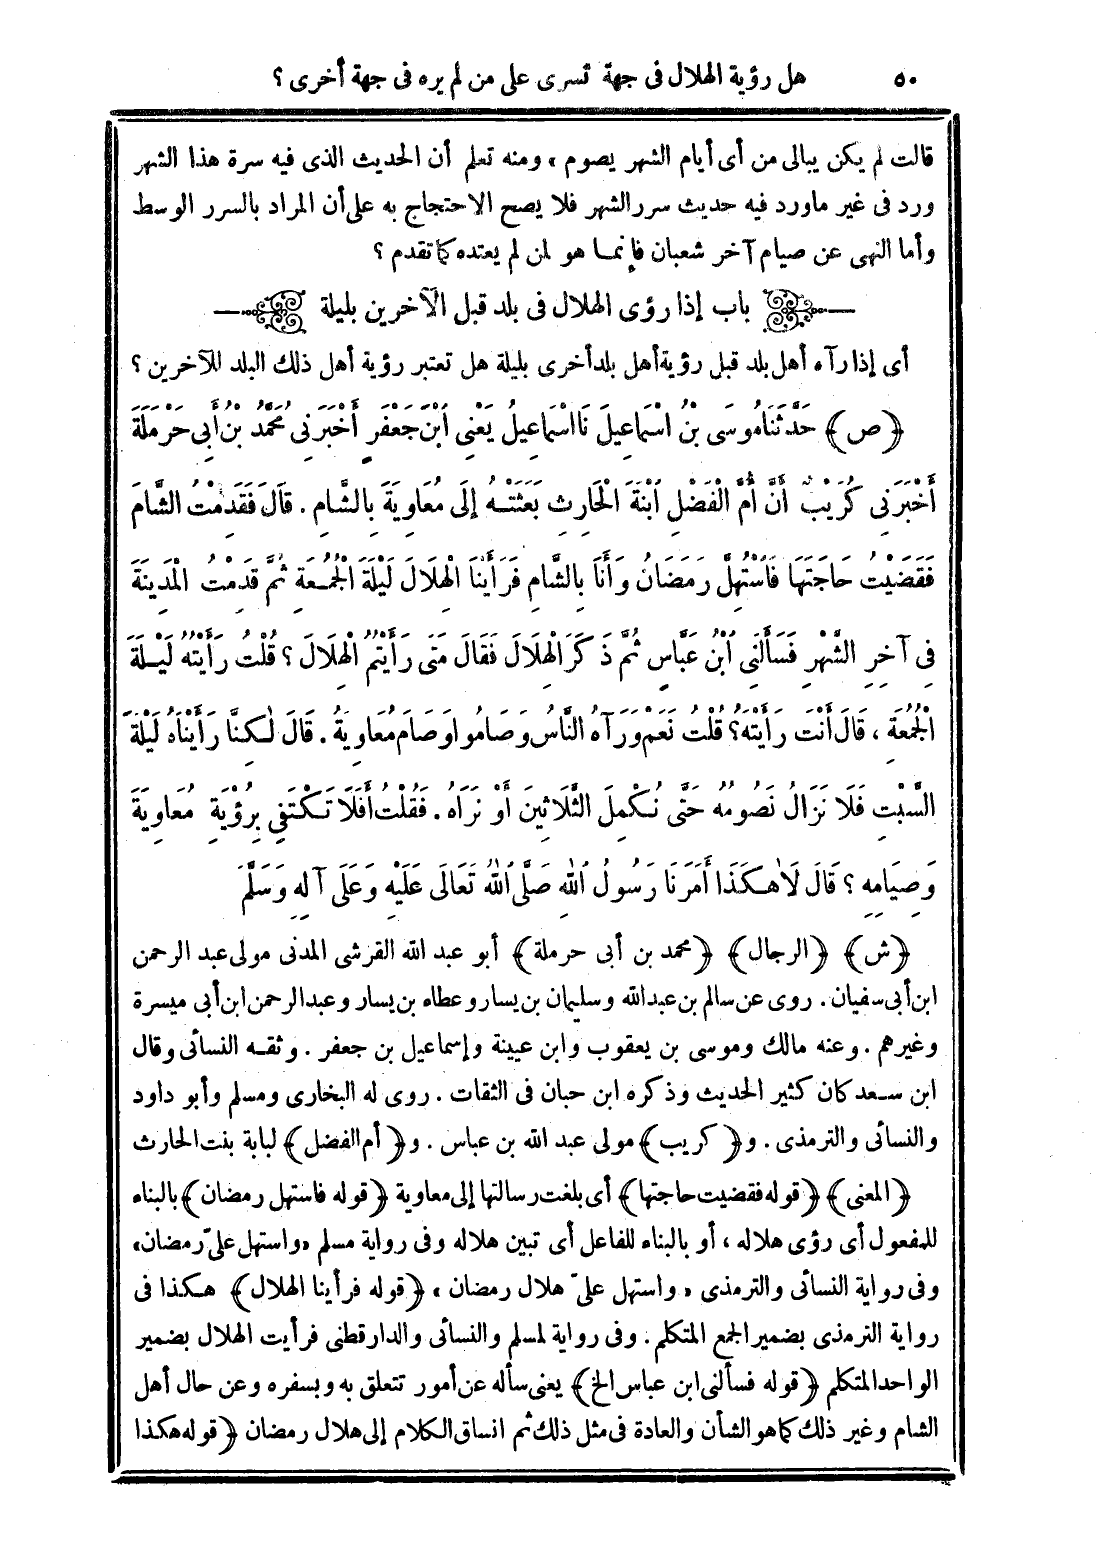 ٥٠ هل رؤية الهلال فى جهة تسرى على من لم يره فى جهة أخرى ؟
قالت لم يكن يبالى من أى أيام الشهر يصوم ، ومنه تعلم أن الحديث الذى فيه سرة هذا الشهر
ورد فى غير ماورد فيه حديث سرر الشهر فلا يصح الاحتجاج به على أن المراد بالسرر الوسط
وأما النهى عن صيام آخر شعبان فإنمـا هو لمن لم يعتده كما تقدم ؟
باب إذا رؤى الهلال فى بلد قبل الآخرين بليلة
أى إذا رآه أهل بلد قبل رؤية أهل بلد أخرى بليلة هل تعتبر رؤية أهل ذلك البلد للآخرين ؟
﴿ص﴾ حَدَّثَنَا مُوسَى بْنُ اسْمَاعِيلَ نَا اسْمَاعِيلُ يَعْنِى ابْنَ جَعْفَرٍ أَخْبَرَنِى مُحَمَّدُ بْنُ أَبِى حَرْمَلَةَ
أَخْبَرَنِى كُرَيْبٌ أَنَّ أُمَّ الْفَضْلِ ابْنَةَ الْحَارِثِ بَعَثَتْـهُ إِلَى مُعَاوِيَةَ بِالشَّامِ . قَالَ فَقَدِمْتُ الشَّامَ
فَقَضَيْتُ حَاجَتَهَا فَاسْتُهِلَّ رَمَضَانُ وَأَنَا بِالشَّامِ فَرَأَيْنَا الْهِلَالَ لَيْلَةَ الْجُمُعَةِ ثُمَّ قَدِمْتُ الْمَدِينَةَ
فِى آخِرِ الشَّهْرِ فَسَأَلَنِى ابْنُ عَبَّاسٍ ثُمَّ ذَكَرَ الْهِلَالَ فَقَالَ مَتَى رَأَيْتُمُ الْهِلَالَ ؟ قُلْتُ رَأَيْتُهُ لَيْـلَةَ
الْجُمُعَةِ ، قَالَ أَنْتَ رَأَيْتَهُ؟ قُلْتُ نَعَمْ وَرَآهُ النَّاسُ وَصَامُوا وَصَامَ مُعَاوِيَةُ . قَالَ لٰكِنَّا رَأَيْنَاهُ لَيْلَةَ
السَّبْتِ فَلَا نَزَالُ نَصُومُهُ حَتَّى نُكْمِلَ الثَّلَاثِينَ أَوْ نَرَاهُ . فَقُلْتُ أَفَلَا تَكْتَفِى بِرُؤْيَةِ مُعَاوِيَةَ
وَصِيَامِهِ ؟ قَالَ لَا هٰكَذَا أَمَرَنَا رَسُولُ اللهِ صَلَّى اللهُ تَعَالَى عَلَيْهِ وَعَلَى آلِهِ وَسَلَّمَ
﴿ش﴾ ﴿الرجال﴾ ﴿محمد بن أبى حرملة﴾ أبو عبد الله القرشى المدنى مولى عبد الرحمن
ابن أبى سفيان . روى عن سالم بن عبد الله وسليمان بن يسار وعطاء بن يسار وعبد الرحمن ابن أبى ميسرة
وغيرهم . وعنه مالك وموسى بن يعقوب وابن عيينة وإسماعيل بن جعفر . وثقـه النسائى وقال
ابن سـعد كان كثير الحديث وذكره ابن حبان فى الثقات . روى له البخارى ومسلم وأبو داود
والنسائى والترمذى . و﴿كريب﴾ مولى عبد الله بن عباس . و﴿أم الفضل﴾ لبابة بنت الحارث
﴿المعنى﴾ ﴿قوله فقضيت حاجتها﴾ أى بلغت رسالتها إلى معاوية ﴿قوله فاستهل رمضان﴾ بالبناء
للمفعول أى رؤى هلاله ، أو بالبناء للفاعل أى تبين هلاله وفى رواية مسلم «واستهل علىّ رمضان»
وفى رواية النسائى والترمذى « واستهل علىّ هلال رمضان » ﴿قوله فرأينا الهلال﴾ هـكذا فى
رواية الترمذى بضمير الجمع المتكلم . وفى رواية لمسلم والنسائى والدارقطنى فرأيت الهلال بضمير
الواحد المتكلم ﴿قوله فسألنى ابن عباس الخ﴾ يعنى سأله عن أمور تتعلق به وبسفره وعن حال أهل
الشام وغير ذلك كما هو الشأن والعادة فى مثل ذلك ثم انساق الكلام إلى هلال رمضان ﴿قوله هكذا